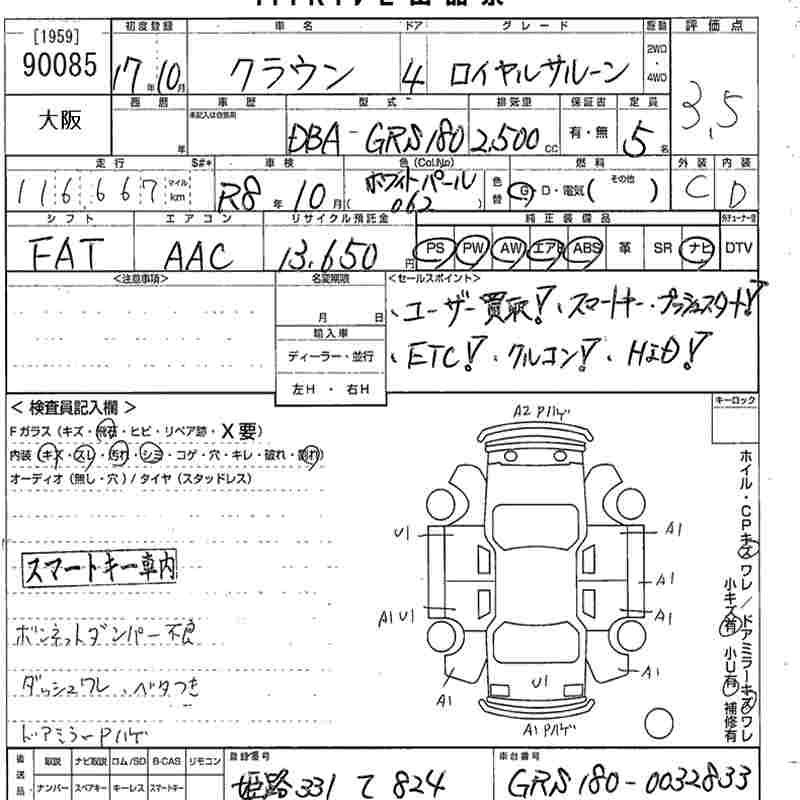 [1959]
90085
大阪
初度登録 車名 ドア グレード 駆動 評価点
17年10月 クラウン 4 ロイヤルサルーン 2WD・4WD 3.5
西暦 車歴 型式 排気量 保証書 定員
年 未記入は自家用 DBA-GRS180 2,500cc 有・無 5名
走行 S#* 車検 色(Col.No) 燃料 外装 内装
116667 マイル km R8年10月 ホワイトパール 062 色替 G・D・電気( その他 ) C D
シフト エアコン リサイクル預託金 純正装備品
FAT AAC 13,650円 PS PW AW エアB ABS 革 SR ナビ DTV
<注意事項> 名変期限 <セールスポイント>
月 日
、ユーザー買取!、スマートキー・プッシュスタート!
輸入車
ディーラー・並行
、ETC!、クルコン!、HID!
左H・右H
<検査員記入欄> キーロック
Fガラス(キズ・飛石・ヒビ・リペア跡・X要)
内装(キズ・スレ・汚れ・シミ・コゲ・穴・キレ・破れ・割れ)
オーディオ(無し・穴)/タイヤ(スタッドレス)
スマートキー車内
ボンネットダンパー不良
ダッシュワレ、ベタつき
ドアミラーPハゲ
A2 Pハゲ
U1 A1
A1
A1U1 A1
A1 U1 A1
A1 Pハゲ
ホイル・CPキズ ワレ/ドアミラーキズ ワレ
小キズ有 小U有 補修有
後送品 取説 ナビ取説 ロム/SD B-CAS リモコン 登録番号 車台番号
ナンバー スペアキー キーレス スマートキー 姫路 331 て 824 GRS180-0032833